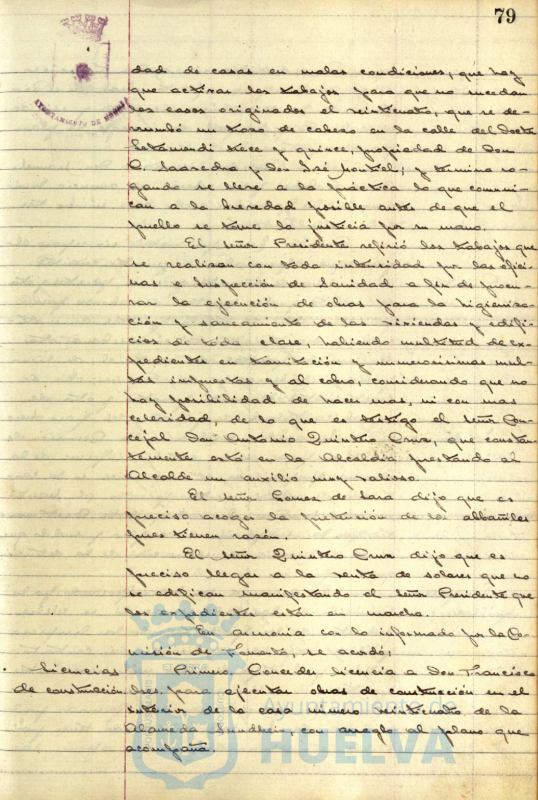 79
AYUNTAMIENTO DE HUELVA
dad de casas en malas condiciones, que hay
que activar los trabajos para que no sucedan
los casos originados el veinticuatro, que se de-
rrumbó un trozo de cabezo en la calle del Doctor
Letamendi trece y quince, propiedad de Don
C. Saavedra y Don José Montiel; y termina ro-
gando se lleve a la práctica lo que comuni-
can a la brevedad posible antes de que el
pueblo se tome la justicia por su mano.
El señor Presidente refirió los trabajos que
se realizan con toda intensidad por las ofici-
nas e Inspección de Sanidad a fin de procu-
rar la ejecución de obras para la higieniza-
ción y saneamiento de las viviendas y edifi-
cios de toda clase, habiendo multitud de ex-
pedientes en tramitación y numerosísimas mul-
tas impuestas y al cobro, considerando que no
hay posibilidad de hacer mas, ni con mas
celeridad, de lo que es testigo el señor Con-
cejal Don Antonio Quintero Cruz, que constan-
temente está en la Alcaldía prestando al
Alcalde un auxilio muy valioso.
El señor Gomez de Lara dijo que es
preciso acoger la pretensión de los albañiles
pues tienen razón.
El señor Quintero Cruz dijo que es
preciso llegar a la venta de solares que no
se edifican manifestando el señor Presidente que
los expedientes están en marcha.
En armonia con lo informado por la Co-
misión de Fomento, se acordó:
Licencias
de construcción.
Primero. Conceder licencia a Don Francisco
para ejecutar obras de construcción en el
interior de la casa número veinticuatro de la
Alameda Sundheim, con arreglo al plano que
acompaña.
Ayuntamiento de
HUELVA